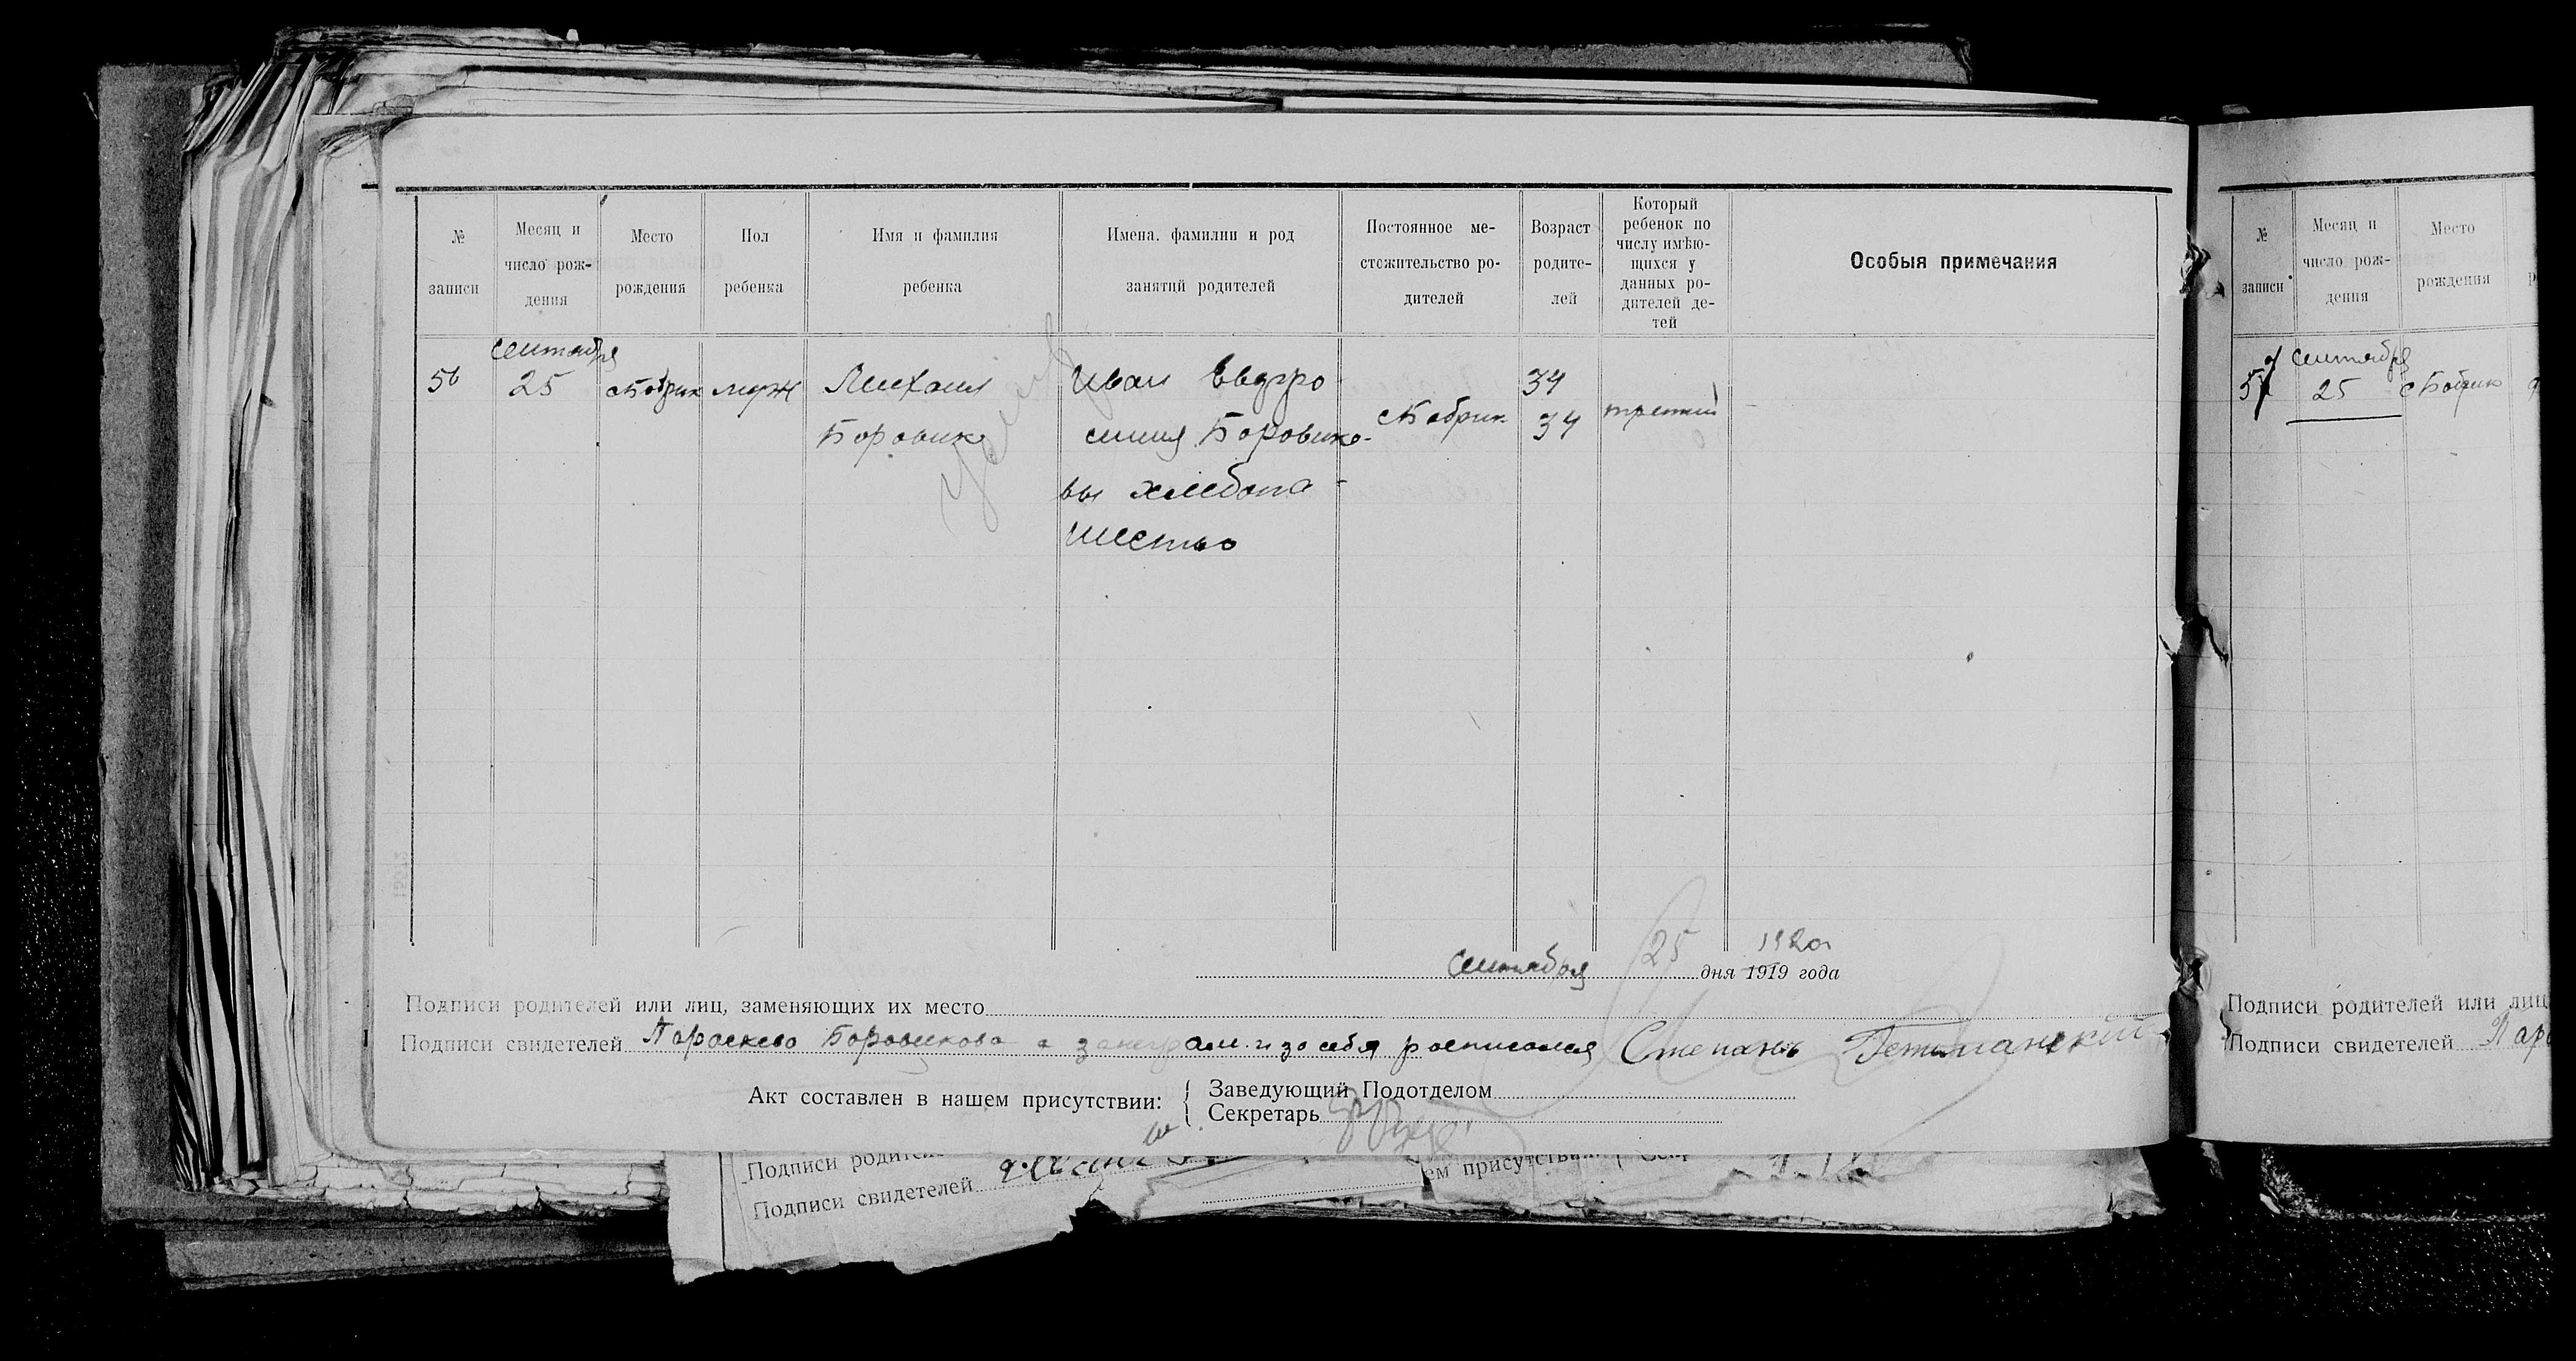 № записи
Месяц и число рож-дения
Место рождения
Пол ребенка
Имя и фамилия ребенка
Имена. фамилии и род занятий родителей
Постоянное ме-стожительство ро-дителей
Возраст родите-лей
Который ребенок по числу имѣю-щихся у данных ро-дителей де-тей
Особыя примечания
56
сентября
25
с Бобрик
муж
Михаил
Боровик
Иван Евдро
синия Боровико-
вы хлебопа-
шество
с Бобрик
34
34
третий
сентября 25 дня 1919 года
1920
Подписи родителей или лиц, заменяющих их место
Подписи свидетелей Параскева Боровикова а за себя росписался Степанъ Гетманский
Акт составлен в нашем присутствии:
Заведующий Подотделом
Секретарь
Подписи родител
Подписи свидетелей
ем присутствии:
№ записи
Месяц и число рож-дения
Место рождения
57
сентября
25
с Бобрик
Подписи родителей или лиц
Подписи свидетелей Пара